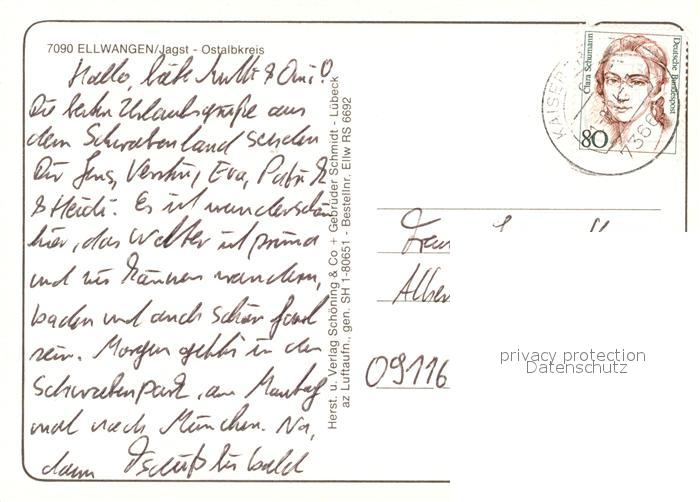 7090 ELLWANGEN/Jagst - Ostalbkreis
Hallo, liebe Mutti & Omi!
Die besten Urlaubsgrüße aus
dem Schwabenland senden
Dir Jens, Eva,
& Heidi. Es ist wunderschön
hier, das Wetter ist prima
und wir können wandern,
baden und auch schön faul
sein. Morgen geht's in den
Schwabenpark, am Montag
mal nach München. Na,
dann Tschüß bis bald
Herst. u. Verlag Schöning & Co + Gebrüder Schmidt - Lübeck
az Luftaufn., gen. SH 1-80651 - Bestellnr. Ellw RS 6692
Clara Schumann
Deutsche Bundespost
80
KAISER
7366
Frau
09116
privacy protection
Datenschutz